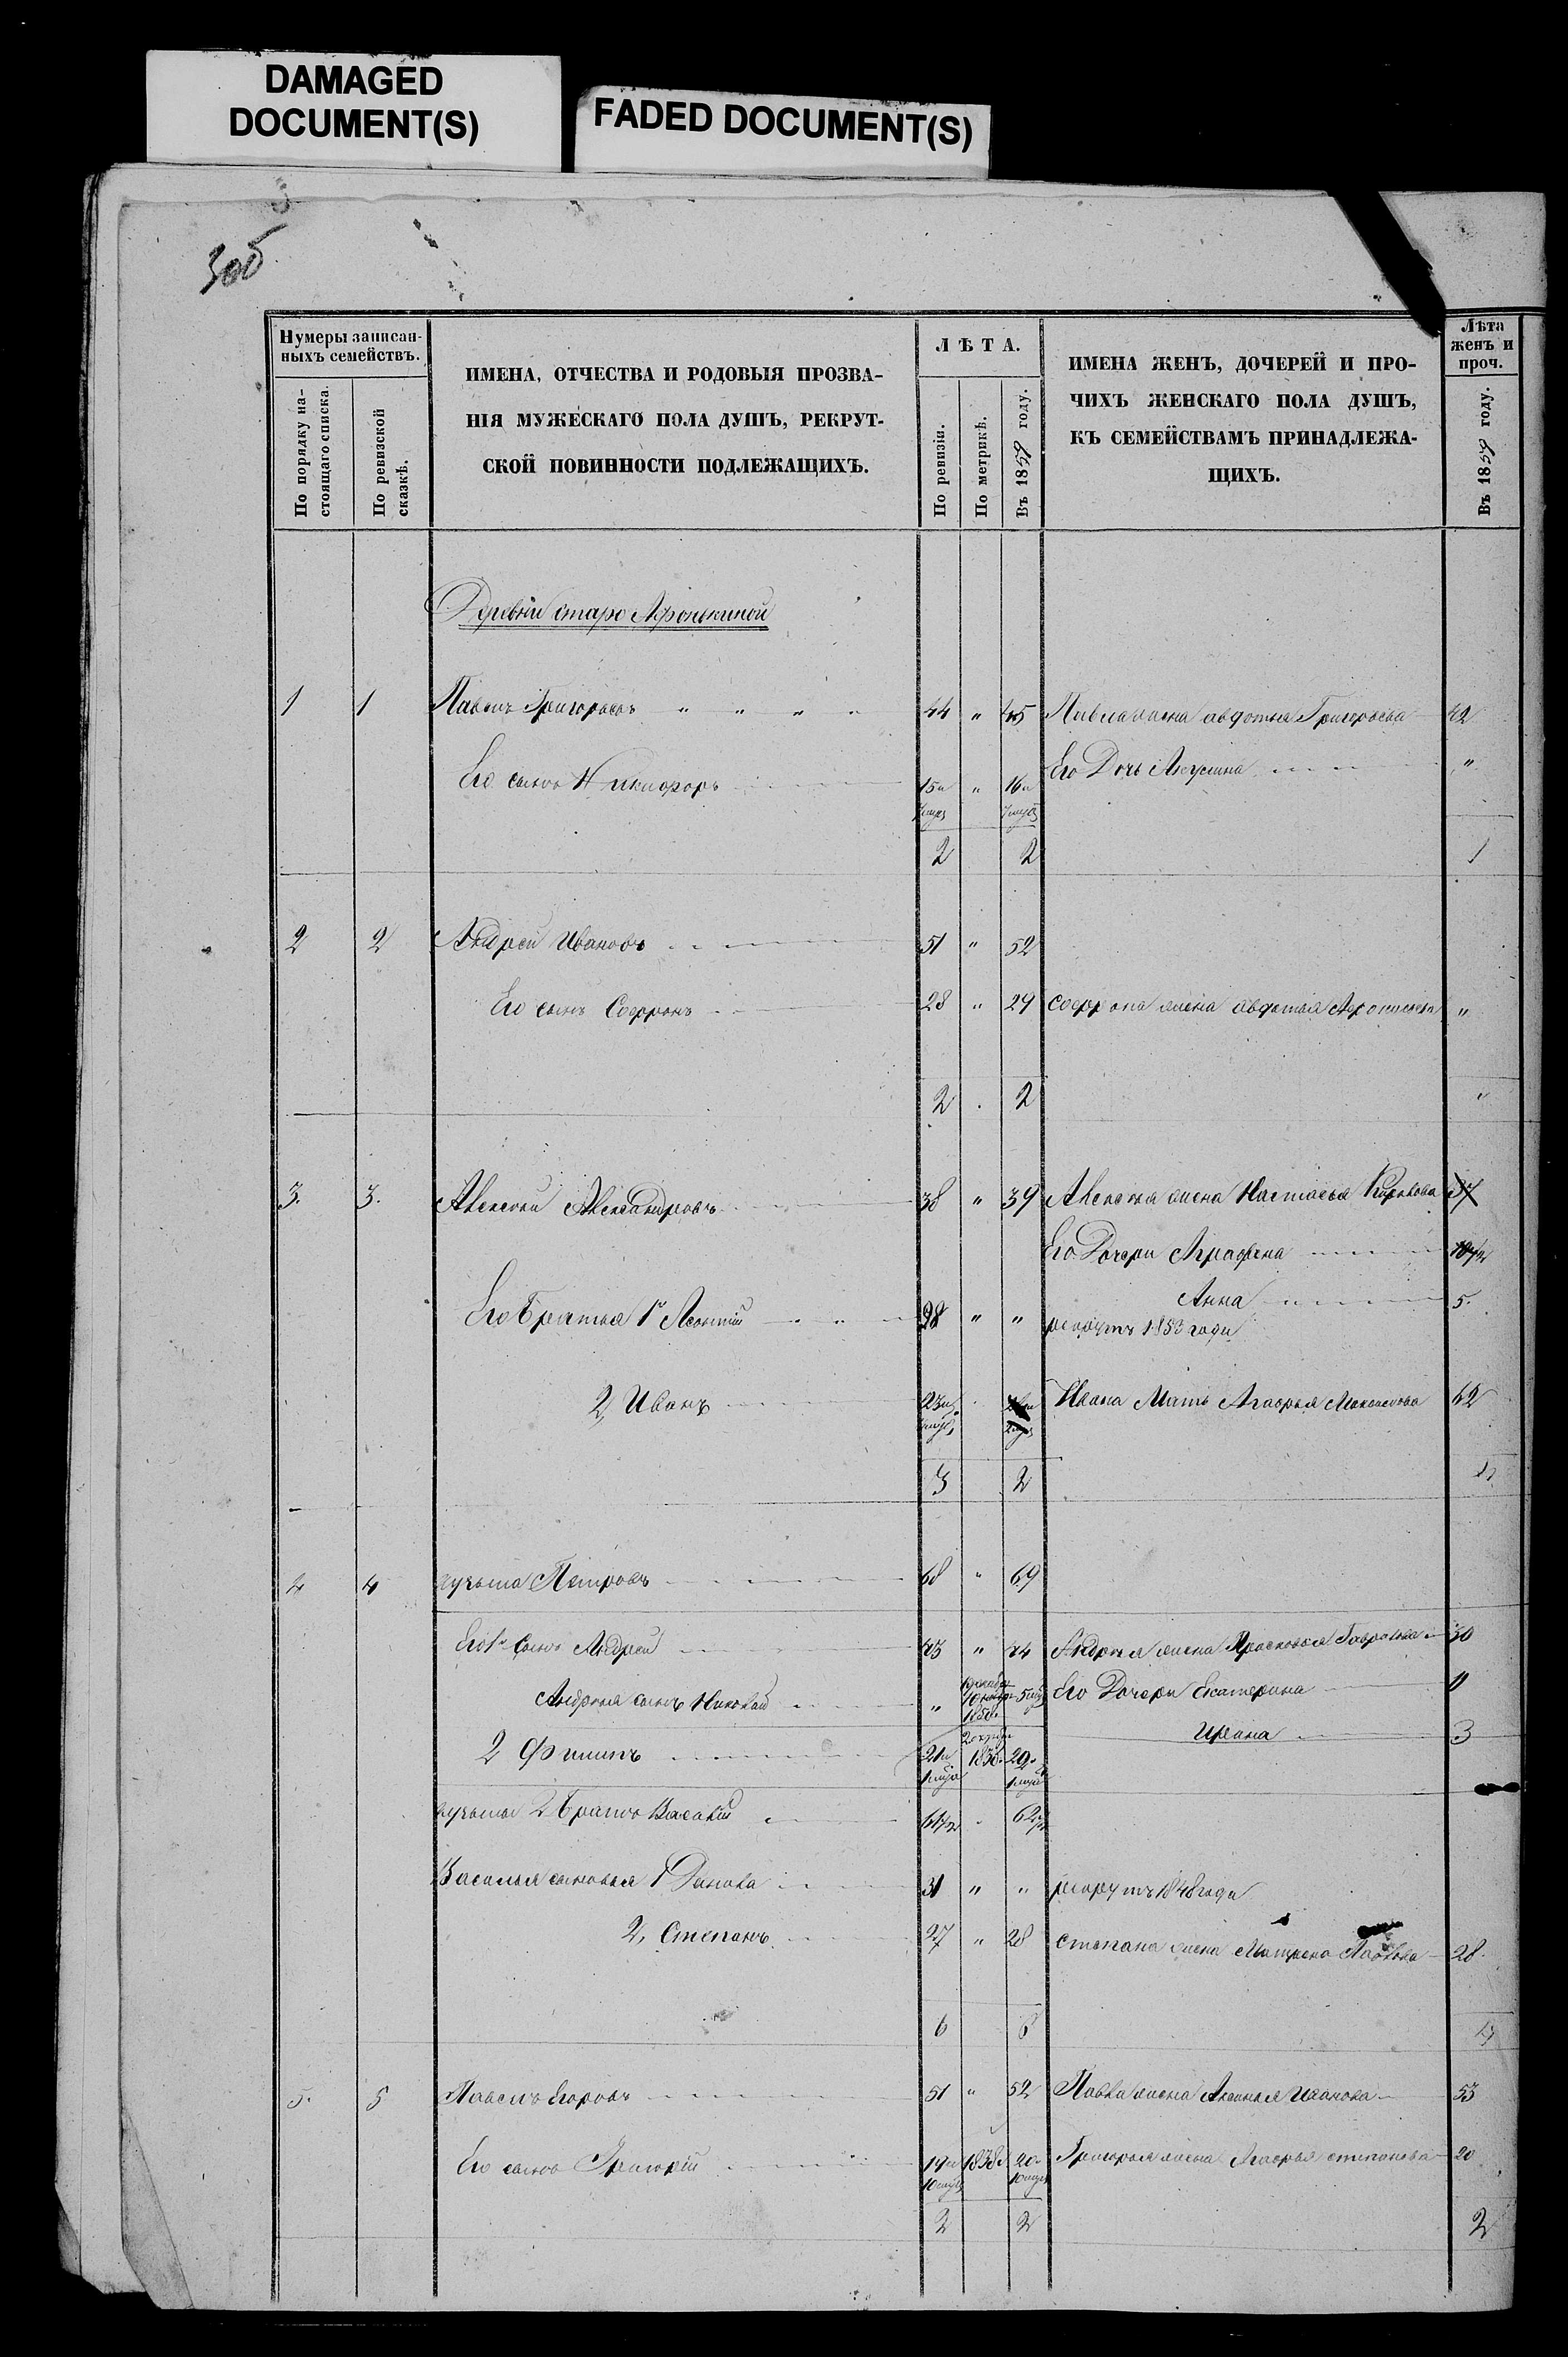 DAMAGED
DOCUMENT(S)
FADED DOCUMENT(S)
Нумеры записан-
ныхъ семействъ.
По порядку на-
стоящаго списка.
По ревизской
сказкѣ.
ИМЕНА, ОТЧЕСТВА И РОДОВЫЯ ПРОЗВА-
НІЯ МУЖЕСКАГО ПОЛА ДУШЪ, РЕКРУТ-
СКОЙ ПОВИННОСТИ ПОДЛЕЖАЩИХЪ.
ЛѢТА.
По ревизіи.
По метрикѣ.
Въ 1859 году.
ИМЕНА ЖЕНЪ, ДОЧЕРЕЙ И ПРО-
ЧИХЪ ЖЕНСКАГО ПОЛА ДУШЪ,
КЪ СЕМЕЙСТВАМЪ ПРИНАДЛЕЖА-
ЩИХЪ.
Лѣта
женъ и
проч.
Въ 1859 году.
Деревни старо Афонькиной
1 1 Павелъ Григорьевъ " " " " 44 " 45 Павла жена авдотья Григорьева 42
Его сынъ Никифоръ 15 " 16 Его Дочь "
2 2 1
2 2 Андрей Ивановъ 51 " 52
Его сынъ Софронъ 28 " 29 Софрона жена авдотья "
2 . 2 "
3. 3. Алексей Александровъ 38 " 39 Алексея жена Настасья 37
Его Дочери Аграфена
Анна 5.
Его Братья 1й Леонтий 28 " " рекрутъ 1853 года
2, Иванъ 23 Ивана Мать Агафья 62
3 2
4 4 Петровъ 68 " 69
Его 1й сынъ Андрей 43 " 44 Андрея жена Прасковья 30
Андрея сынъ Николай " 1858 5 Его Дочери Екатерина
Ирина 3
2 Филипъ 1830. 29
2 Братъ Василий
Василья сыновья 1 Данила 31 " " рекрутъ 1848 года
2, Степанъ 27 " 28 Степана жена Матрена 28
6 6
5. 5 Павелъ Егоровъ 51 " 52 Павла жена Аксинья Иванова 53
Его сынъ Григорий 19 1838 20 Григорья жена Агафья степанова 20
2 2 2